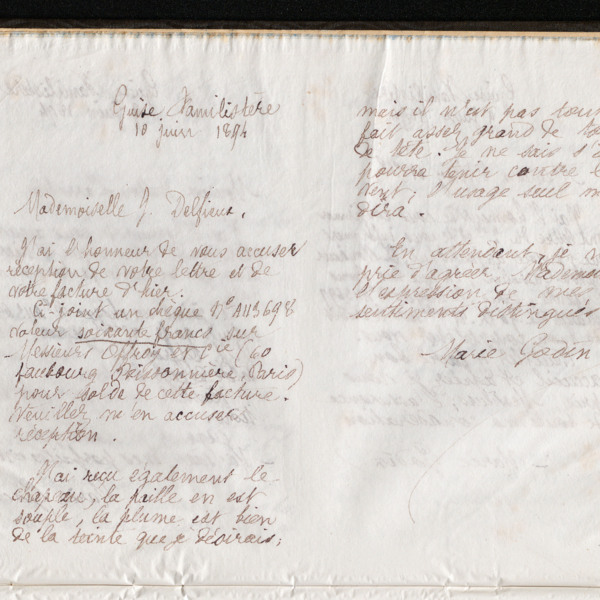 Guise, Familistère
10 juin 1894
Mademoiselle J. Delfieux,
J'ai l'honneur de vous accuser
réception de votre lettre et de
votre facture d'hier.
Ci-joint un chèque N° A113698
valeur soixante francs sur
Messieurs Offroy et Cie (60
faubourg Poissonnière, Paris)
pour solde de cette facture.
Veuillez m'en accuser
réception.
J'ai reçu également le
chapeau, la paille en est
souple, la plume est bien
de la teinte que je désirais;
mais il n'est pas tout
fait assez grand de
de tête. Je ne sais s'il
pourra tenir contre le
vent; l'usage seul m
dira.
En attendant, je
prie d'agréer, Mademoi
l'expression de mes
sentiments distingués
Marie Godin